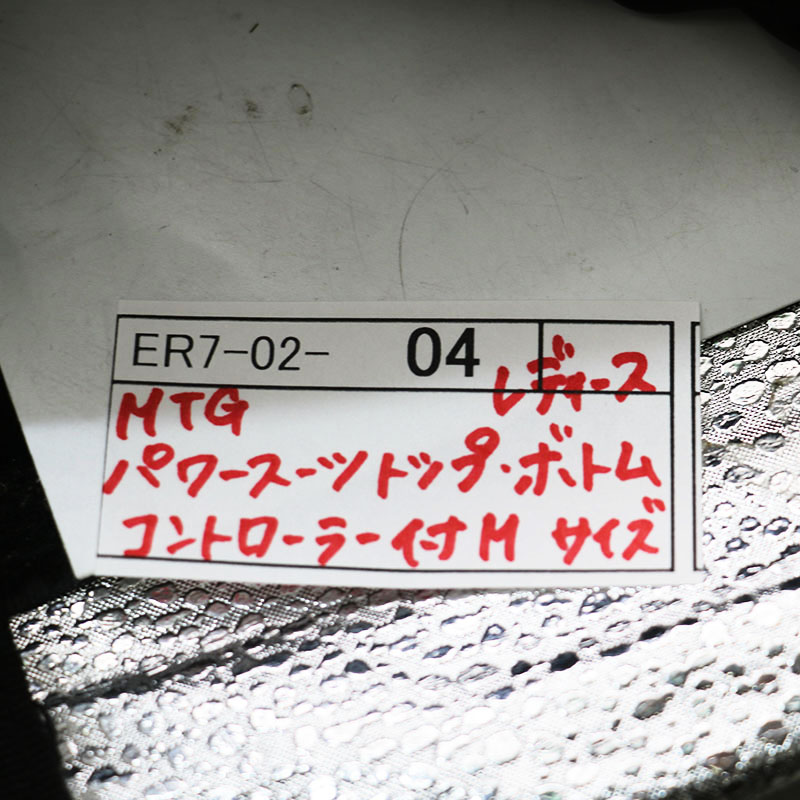 ER7-02- 04
レディース
MTG
パワースーツトップ・ボトム
コントローラー付 M サイズ